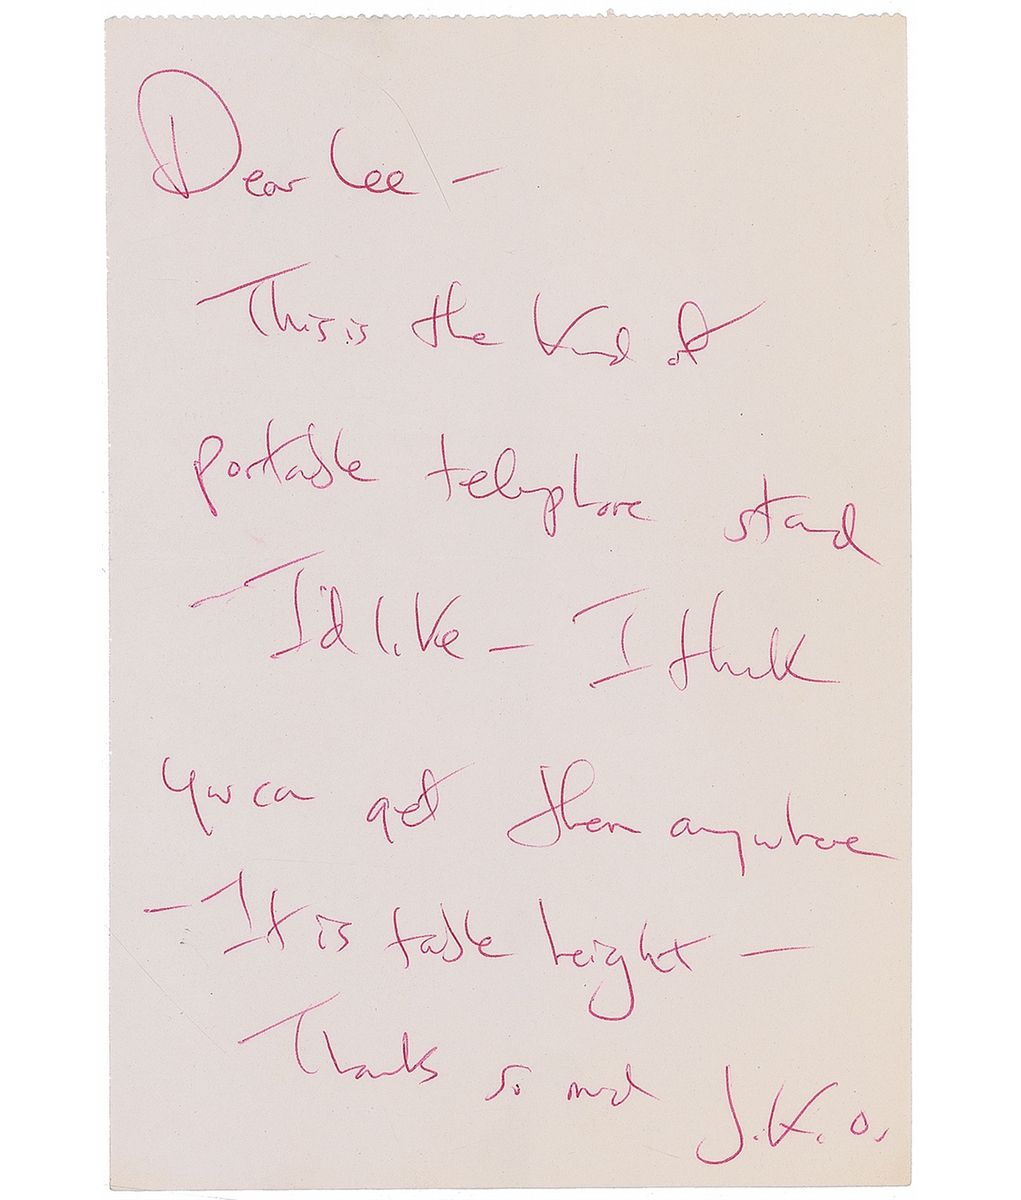 Dear Lee —
This is the kind of
portable telephone stand
— I'd like — I think
you can get them anywhere
— It is table height —
Thanks so much
J.K.O.